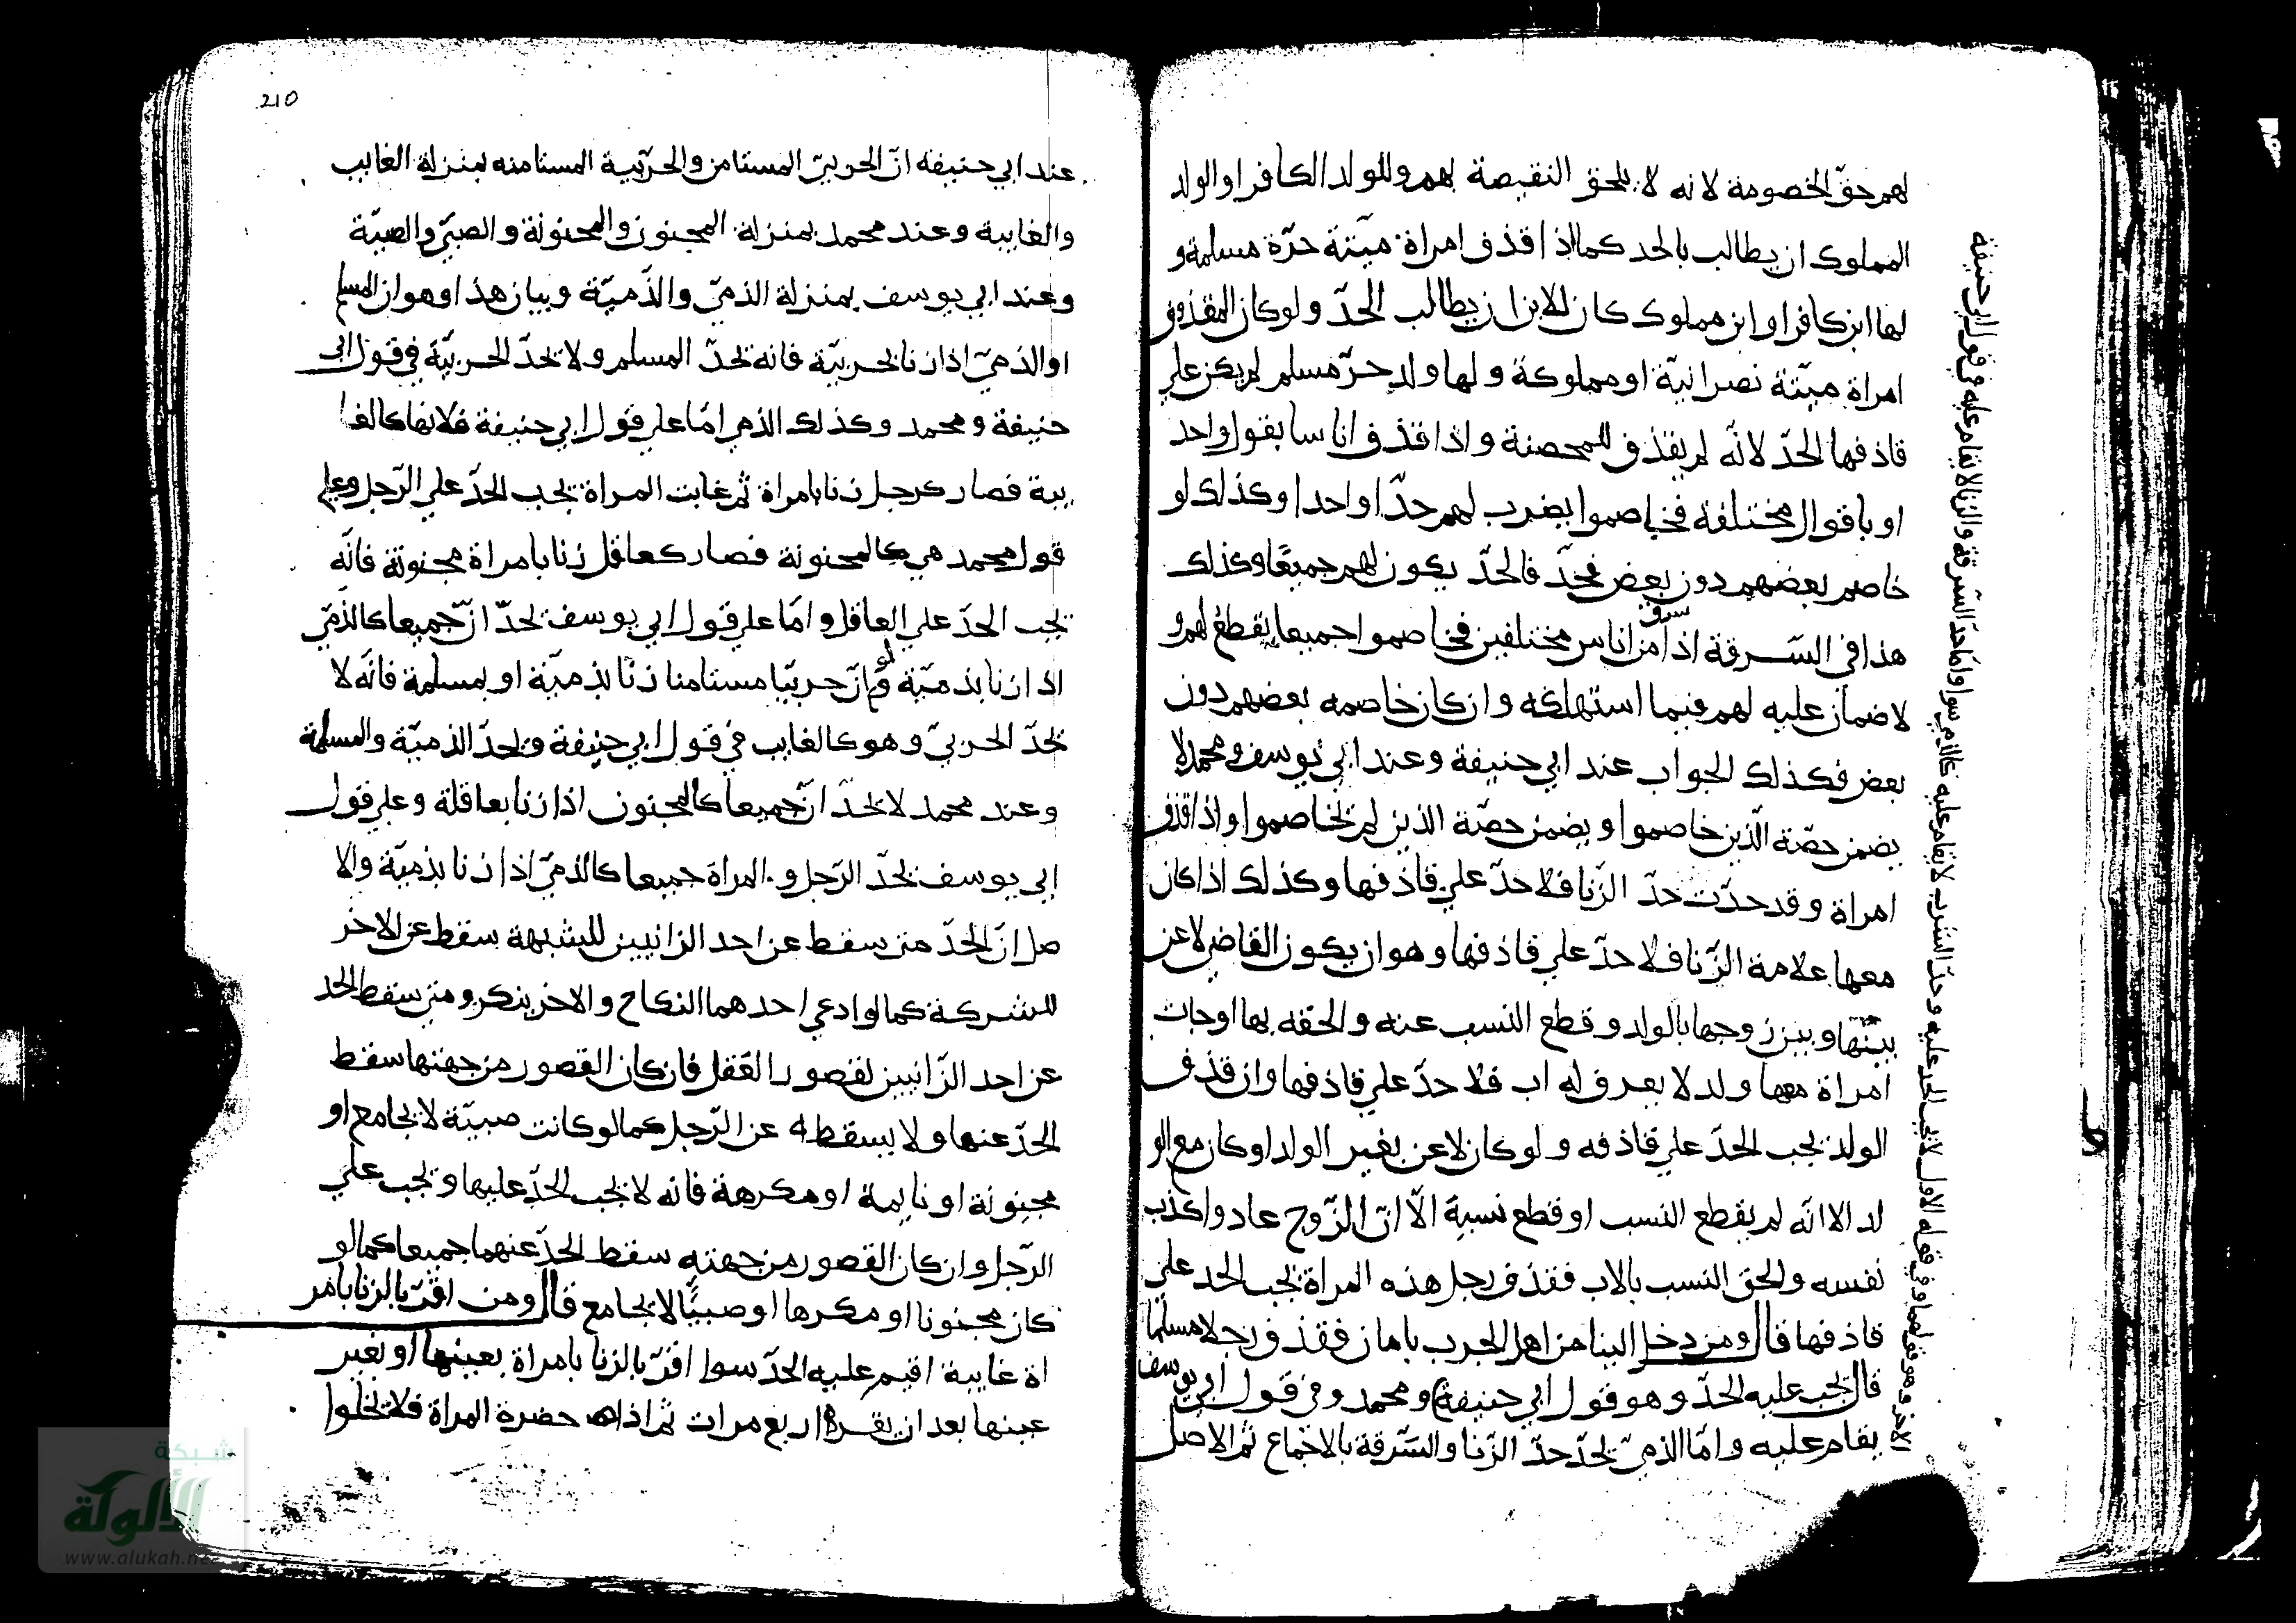 لهم حقّ الخصومة لانه لا يلحق النقيصة بهم وللولد الكافر او الولد
المملوك ان يطالب بالحد كما اذا قذف امراة ميّتة حرّة مسلمة و
لها ابن كافر او ابن مملوك كان للابن ان يطالب الحدّ ولو كان المقذوف
امراة ميّتة نصرانيّة او مملوكة ولها ولد حرّ مسلم لم يكن علي
قاذفها الحدّ لانّه لم يقذف المحصنة واذا قذف اناسا بقول واحد
او باقوال مختلفة فخاصموا يضرب لهم حدّا واحدا وكذلك لو
خاصم بعضهم دون بعض فحدّ فالحدّ يكون لهم جميعا وكذلك
هذا في السّرقة اذا سرق من اناس مختلفين فخاصموا جميعا يقطع لهم و
لا ضمان عليه لهم فيما استهلكه وان كان خاصمه بعضهم دون
بعض فكذلك الجواب عند ابي حنيفة وعند ابي يوسف ومحمد لا
يضمن حصّة الّذين خاصموا ويضمن حصّة الذين لم يخاصموا واذا قذف
امراة وقد حدّت حدّ الزّنا فلا حدّ علي قاذفها وكذلك اذا كان
معها علامة الزّنا فلا حدّ علي قاذفها وهو ان يكون القاضي لاعن
بينها وبين زوجها بالولد وقطع النسب عنه والحقه بها او جات
امراة معها ولد لا يعرف له اب فلا حدّ علي قاذفها وان قذف
الولد يجب الحدّ علي قاذفه ولو كان لاعن بغير الولد او كان مع الو
لد الا انّه لم يقطع النسب او قطع نسبه الّا انّ الزّوج عاد واكذب
نفسه والحق النسب بالاب فقذف رجل هذه المراة يجب الحد علي
قاذفها قال ومن دخل الينا من اهل الحرب بامان فقذف رجلا مسلما
قال يجب عليه الحدّ وهو قول ابي حنيفة ومحمد وفي قول ابي يوسف
يقام عليه وامّا الذميّ يحدّ حدّ الزّنا والسّرقة بالاجماع ثم الاصل
الاخر وهو قولهما وفي قوله الاول لا يجب الحد عليه وحدّ الشرب لا يقام عليه كالذمي سوا وامّا حدّ السّرقة والزنا لا يقام عليه في قول ابي حنيفة
210
عند ابي حنيفة انّ الحربيّ المستامن والحربّية المستامنه بمنزلة الغايب
والغايبة وعند محمد بمنزلة المجنون والمجنونة والصبيّ والصبيّة
وعند ابي يوسف بمنزلة الذميّ والذّميّة وبيان هذا وهو ان المسلم
او الذميّ اذا زنا بحربيّة فانه يحدّ المسلم ولا يحدّ الحربيّة في قول ابي
حنيفة ومحمد وكذلك الذمي امّا علي قول ابي حنيفة فلانها كالغا
يبة فصار كرجل زنا بامراة ثم غابت المراة يجب الحدّ علي الرّجل وعلي
قول محمد هي كالمجنونة فصار كعاقل زنا بامراة مجنونة فانّه
يجب الحدّ علي العاقل وامّا علي قول ابي يوسف يحدّ انّ جميعا كالذّميّ
اذا زنا بذميّة ولو انّ حربيّا مستامنا زنا بذميّة او بمسلمة فانّه لا
يحدّ الحربيّ وهو كالغايب في قول ابي حنيفة ويحدّ الذميّة والمسلمة
وعند محمد لا يحدّ انّ جميعا كالمجنون اذا زنا بعاقلة وعلي قول
ابي يوسف يحدّ الرّجل والمراة جميعا كالذميّ اذا زنا بذميّة والا
صل انّ الحدّ متي سقط عن احد الزانيين للشبهة سقط عن الاخر
للشركة كما لو ادعي احدهما النكاح والاخر ينكر ومتي سقط الحد
عن احد الزّانيين لقصور العقل فان كان القصور من جهتها سقط
الحدّ عنها ولا يسقط عن الرّجل كما لو كانت صبيّة لا يجامع او
مجنونة او نايمة او مكرهة فانه لا يجب الحدّ عليها ويجب علي
الرّجل وان كان القصور من جهته سقط الحدّ عنهما جميعا كما لو
كان مجنونا او مكرها او صبيّا لا يجامع قال ومن اقرّ بالزنا بامر
اة غايبة اقيم عليه الحدّ سوا اقرّ بالزنا بامراة بعينها او بغير
عينها بعد ان يقر اربع مرات ثم اذا حضرة المراة فلا يخلوا
شبكة
الألوكة
www.alukah.net